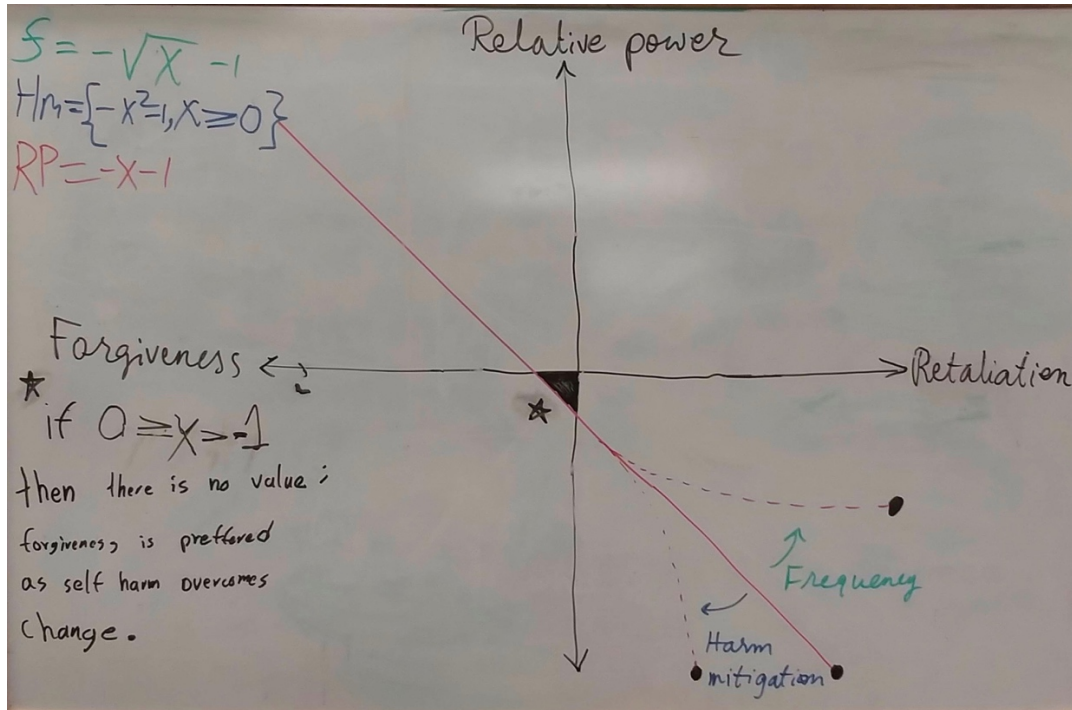 f = -√x -1
Hm={-x²-1, x≥0}
RP=-x-1
Relative power
Forgiveness
Retaliation
if 0≥x>-1
then there is no value;
forgivenes, is preffered
as self harm overcomes
change.
Frequency
Harm
mitigation